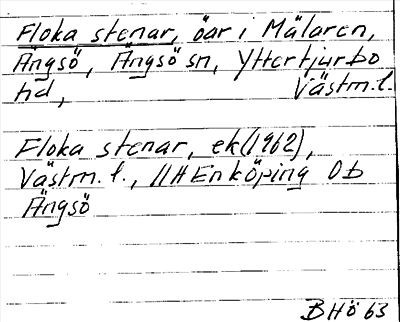 Floka stenar, öar i Mälaren,
Ängsö, Ängsö sn, Yttertjurbo
hd, Västm.l.
Floka stenar, ek(1962),
Västm.l., 11H Enköping 0b
Ängsö
BHö 63